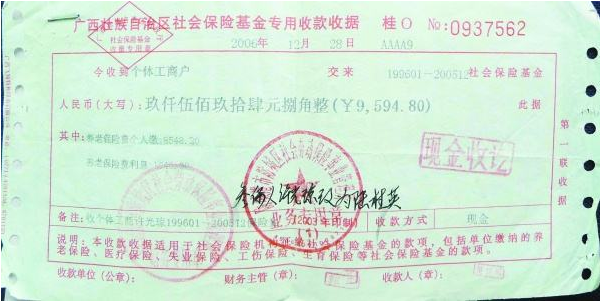 广西壮族自治区社会保险基金专用收款收据 桂O No:0937562
社会保险基金
收据专用章
2006年 12月 28日 AAAA9
今收到 个体工商户 交来 199601-200512社会保险基金
人民币(大写):玖仟伍佰玖拾肆元捌角整(￥9,594.80) 此据
其中:养老保险费个人缴:8548.20
养老保险费利息
现金收讫
第一联收据
业务专用章
(1)
备注:收个体工商 199601-200512保险 (2003年印制) 收款方式 现金
说明:本收款收据适用于社会保险机构征缴社会保险基金的款项,包括单位缴纳的养
老保险、医疗保险、失业保险、工伤保险、生育保险等社会保险基金的款项。
收款单位(公章): 财务主管(章): 收款人(章):